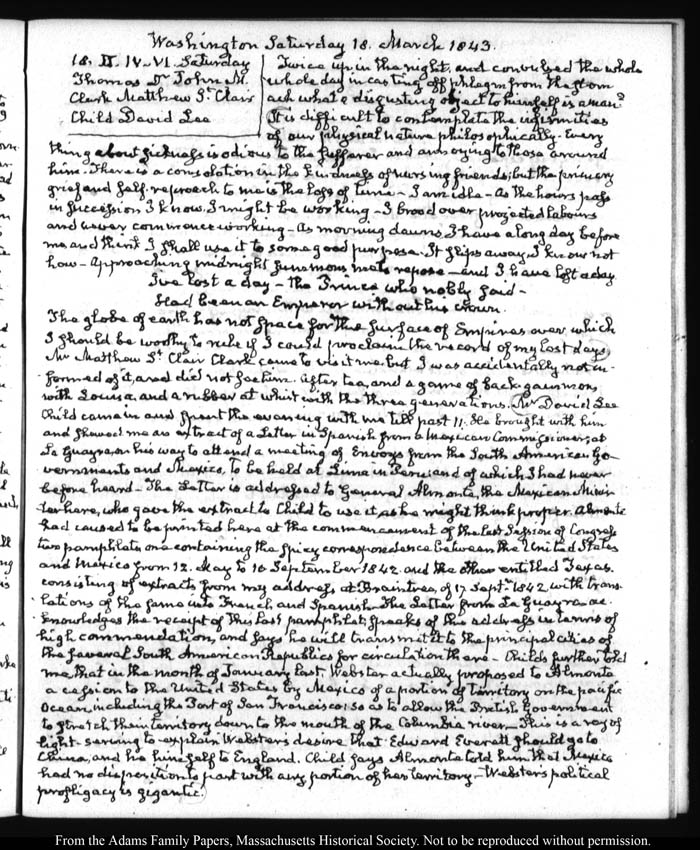 Washington Saturday 18. March 1843.
18. II. IV-VI. Saturday
Thomas Dr John M.
Clark Matthew St. Clair
Child David Lee
Twice up in the night, and convulsed the whole
whole day in casting off phlegm from the stom
ach what a disgusting object to himself is a man?
It is difficult to contemplate the infirmities
of our physical nature philosophically. Every
thing about sickness is odious to the sufferer and annoying to those around
him. There is a consolation in the kindness of nursing friends; but the primary
grief and self-reproach to me is the loss of time - I am idle - As the hours pass
in succession I know I might be working - I brood over projected labours
and never commence working - As morning dawns I have a long day before
me and think I shall use it to some good purpose. It slips away I know not
how - Approaching midnight summons me to repose - and I have lost a day
I've lost a day - the Prince who nobly said -
Had been an Emperor without his crown.
The globe of earth has not space for the surface of Empires over which
I should be worthy to rule if I could proclaim the record of my lost days.
Mr Matthew St. Clair Clark came to visit me but I was accidentally not in-
formed of it, and did not see him. After tea, and a game of backgammon,
with Louisa, and a rubber at whist with the three generations. Mr David Lee
Child came in and spent the evening with me till past 11. He brought with him
and shewed me an extract of a Letter in Spanish from a Mexican Commissioner at
La Guayra on his way to attend a meeting of Envoys from the South American Go-
vernments and Mexico, to be held at Lima in Peru; and of which I had never
before heard - The Letter is addressed to General Almonte, the Mexican Minis
ter here, who gave the extract to Child to use it as he might think proper. Almonte
had caused to be printed here at the commencement of the last Session of Congress
two pamphlets one containing the spicy correspondence between the United States
and Mexico from 12. May to 10 September 1842. and the other entitled Texas.
consisting of extracts from my address at Braintree, of 17 Septr. 1842 with trans-
lations of the same into French and Spanish. The Letter from La Guayra ac-
knowledges the receipt of this last pamphlet; speaks of the address in terms of
high commendation, and says he will transmit it to the principal cities of
the several South American Republics for circulation there - Childs further told
me that in the month of January last Webster actually proposed to Almonte
a cession to the United States by Mexico of a portion of territory on the pacific
Ocean, including the Port of San Francisco; so as to allow the British Government
to stretch their territory down to the mouth of the Columbia river - This is a ray of
light serving to explain Webster's desire that Edward Everett should go to
China, and he himself to England. Child says Almonte told him that Mexico
had no disposition to part with any portion of her territory - Webster's political
profligacy is gigantic.
From the Adams Family Papers, Massachusetts Historical Society. Not to be reproduced without permission.